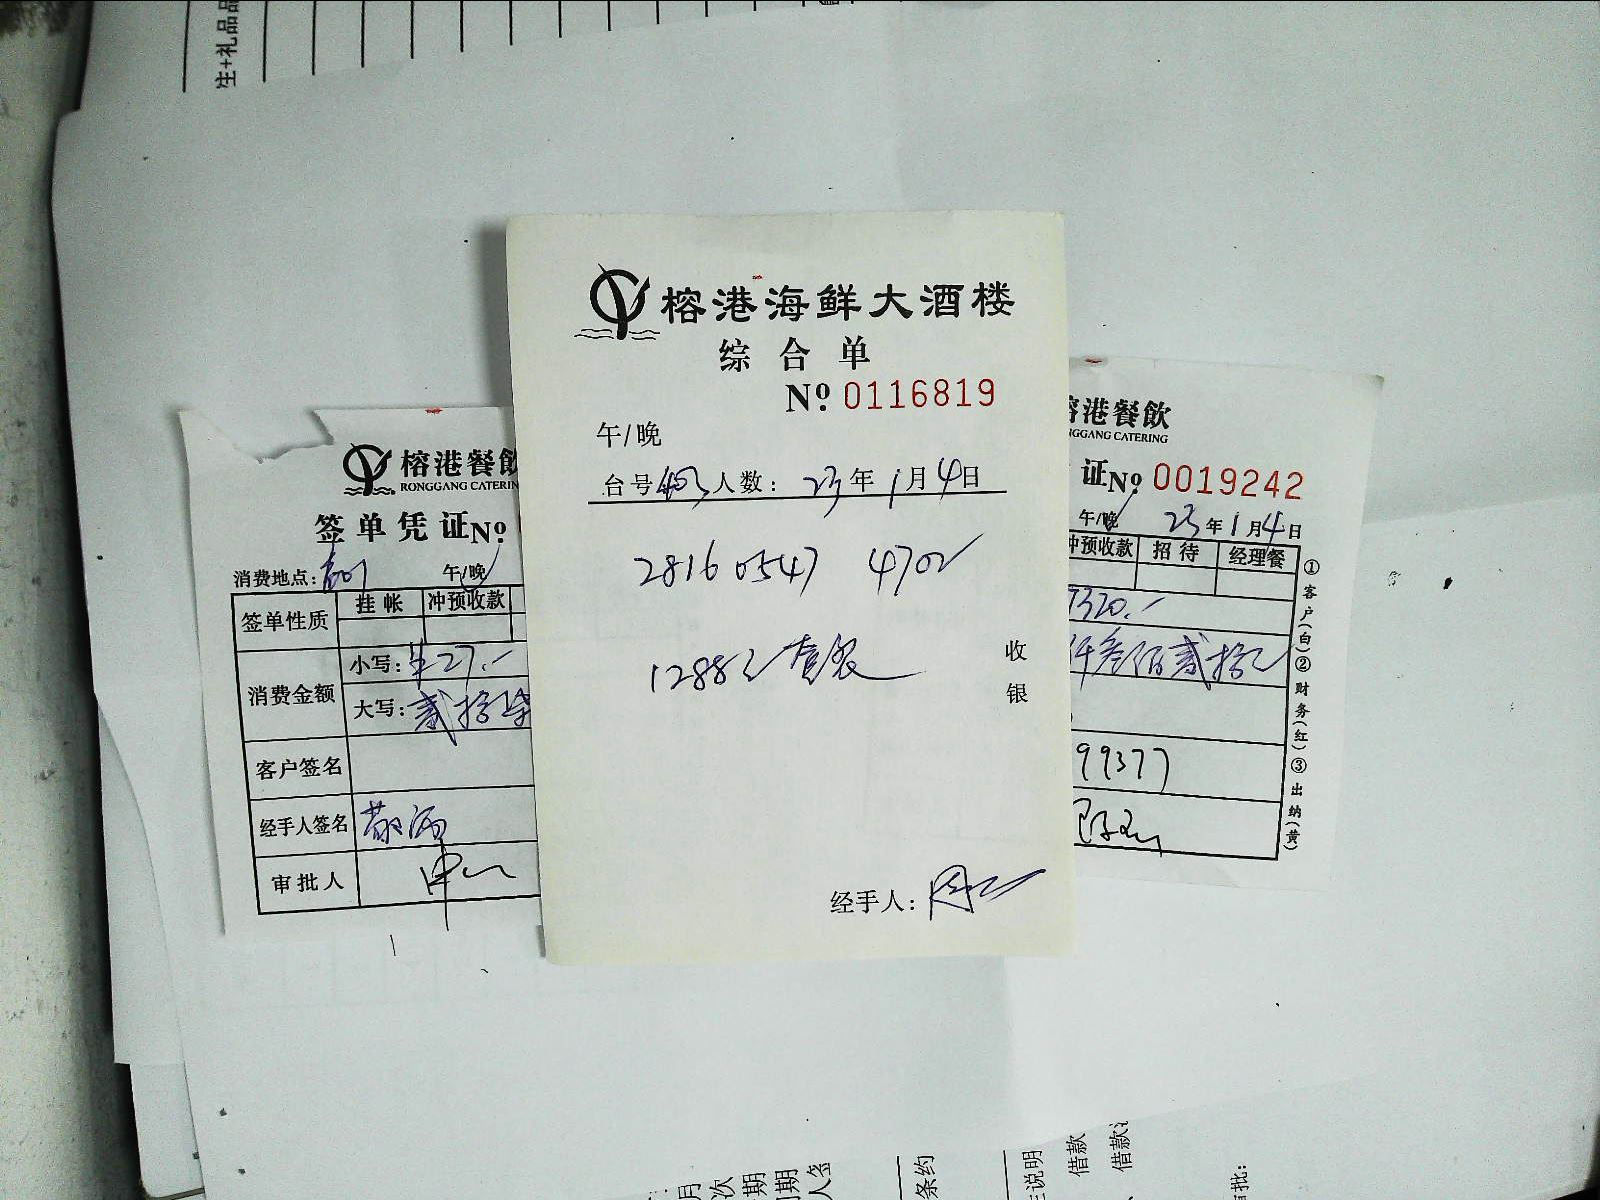 生+礼品
榕港海鲜大酒楼
综合单
Nº 0116819
午/晚
台号 403 人数: 23年1月4日
28160547 4702
1288元套餐
收银
经手人:
榕港餐飲
RONGGANG CATERIN
签单凭证Nº
消费地点: 午/晚
签单性质 挂帐 冲预收款
消费金额 小写: ¥27.-
大写: 贰拾柒
客户签名
经手人签名
审批人
港餐飲
GGANG CATERING
证Nº 0019242
午/晚 23年1月4日
冲预收款 招待 经理餐
7320.-
仟叁佰贰拾元
99377
①客户(白)②财务(红)③出纳(黄)
月
次
期
期
人签
条约
说明
借款
借款
批: